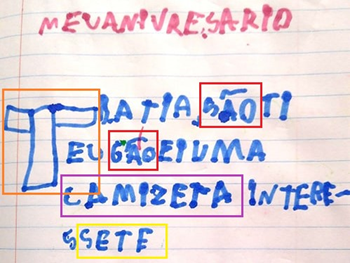 MEUANIVRESARIO
TRATIA, SÃOTI
EU GÃOEIUMA
CAMIZETA INTERE-
SSETE